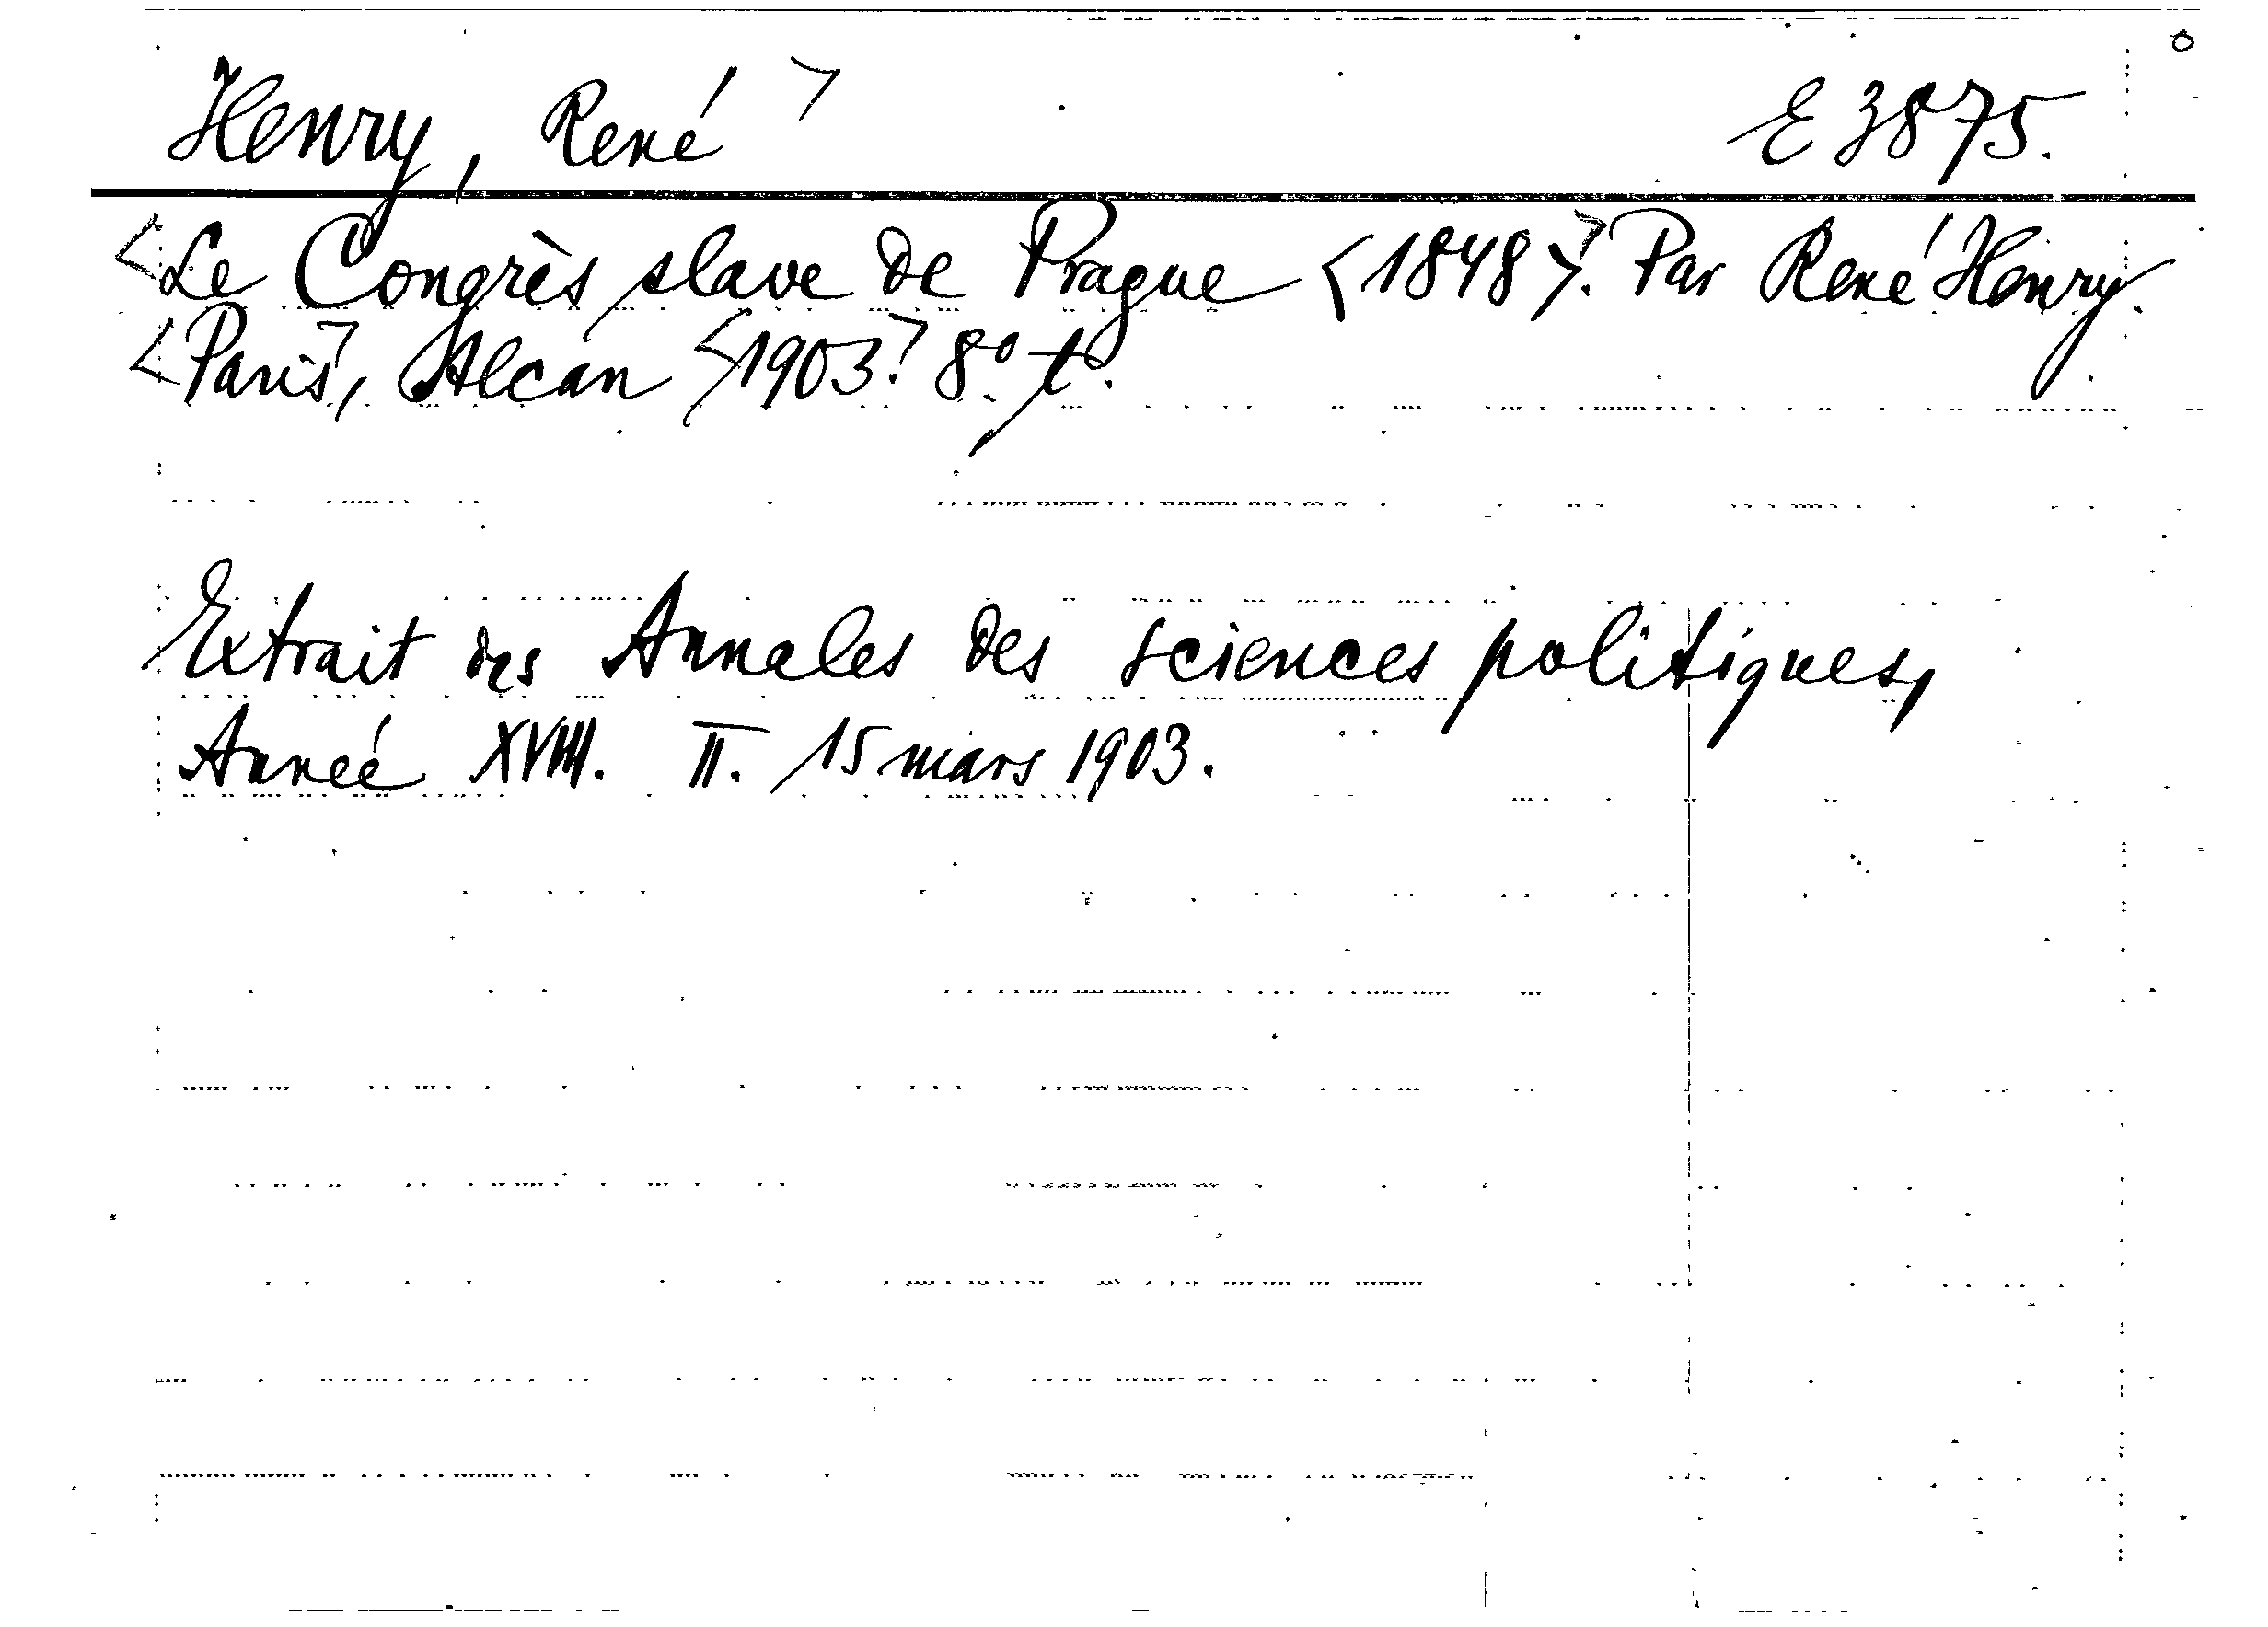 Henry, René> E 3875.
<Le Congrès slave de Prague <1848>>. Par René Henry.
<Paris>, Alcan <1903>. 8°. t.
Extrait des Annales des sciences politiques,
Anneé XVIII. II. 15 mars 1903.